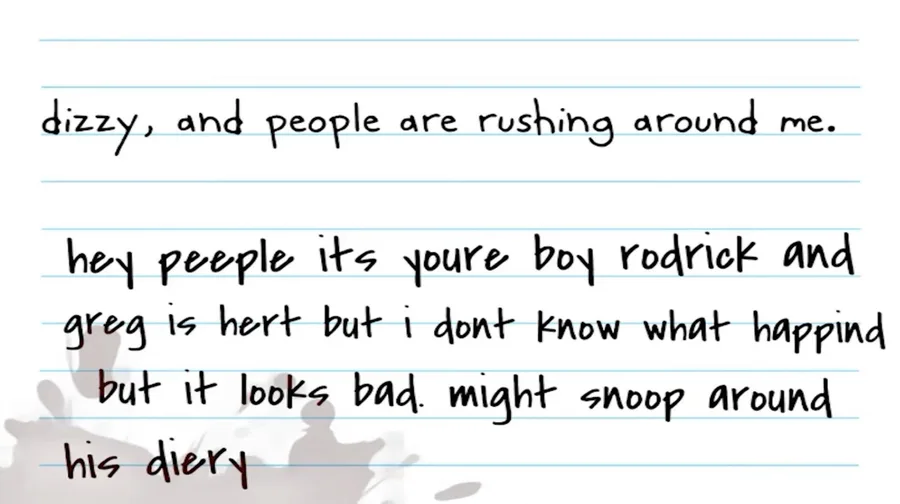 dizzy, and people are rushing around me.
hey peeple its youre boy rodrick and
greg is hert but i dont know what happind
but it looks bad. might snoop around
his diery